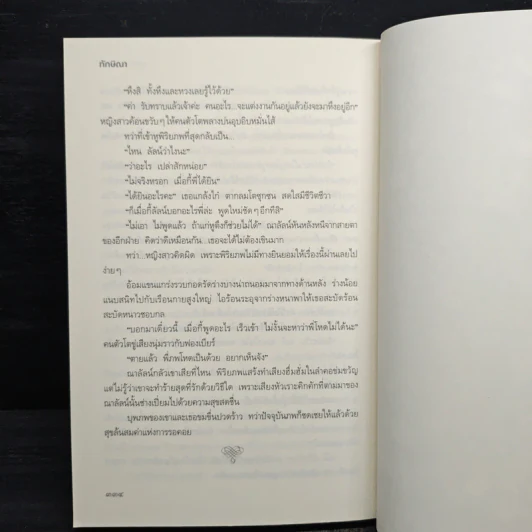 ทักษิณา
"หึงสิ ทั้งหึงและหวงเลยรู้ไว้ด้วย"
"ค่า รับทราบแล้วเจ้าค่ะ คนอะไร...จะแต่งงานกันอยู่แล้วยังจะมาหึงอยู่อีก"
หญิงสาวค้อนขวับๆ ให้คนตัวโตพลางบ่นอุบอิบหมั่นไส้
ทว่าที่เข้าหูพิริยภพที่สุดกลับเป็น...
"ไหน ลัลน์ว่าไงนะ"
"ว่าอะไร เปล่าสักหน่อย"
"ไม่จริงหรอก เมื่อกี้พี่ได้ยิน"
"ได้ยินอะไรคะ" เธอแกล้งไก๋ ตากลมโตซุกซน สดใสมีชีวิตชีวา
"ก็เมื่อกี้ลัลน์บอกอะไรพี่ล่ะ พูดใหม่ชัดๆ อีกทีสิ"
"ไม่เอา ไม่พูดแล้ว ถ้าแก่หูตึงก็ช่วยไม่ได้" ณาลัลน์หันหลังหนีจากสายตา
ของอีกฝ่าย คิดว่าดีเหมือนกัน...เธอจะได้ไม่ต้องเขินมาก
ทว่า...หญิงสาวคิดผิด เพราะพิริยภพไม่มีทางยินยอมให้เรื่องนี้ผ่านเลยไป
ง่ายๆ
อ้อมแขนแกร่งรวบกอดรัดร่างบางน่าถนอมมาจากทางด้านหลัง ร่างน้อย
แนบสนิทไปกับเรือนกายสูงใหญ่ ไอร้อนระอุจากร่างหนาพาให้เธอสะบัดร้อน
สะบัดหนาวชอบกล
"บอกมาเดี๋ยวนี้ เมื่อกี้พูดอะไร เร็วเข้า ไม่งั้นจะหาว่าพี่โหดไม่ได้นะ"
คนตัวโตขู่เสียงนุ่มราวกับฟองเบียร์
"ตายแล้ว พี่ภพโหดเป็นด้วย อยากเห็นจัง"
ณาลัลน์กลัวเขาเสียที่ไหน พิริยภพแสร้งทำเสียงฮึ่มฮั่มในลำคอข่มขวัญ
แต่ไม่รู้ว่าเขาจะทำร้ายสุดที่รักด้วยวิธีใด เพราะเสียงหัวเราะคิกคักที่ตามมาของ
ณาลัลน์นั้นช่างเปี่ยมไปด้วยความสุขสดชื่น
บุพภพของเขาและเธอขมขื่นปวดร้าว ทว่าปัจจุบันภพก็ชดเชยให้แล้วด้วย
สุขล้นสมค่าแห่งการรอคอย